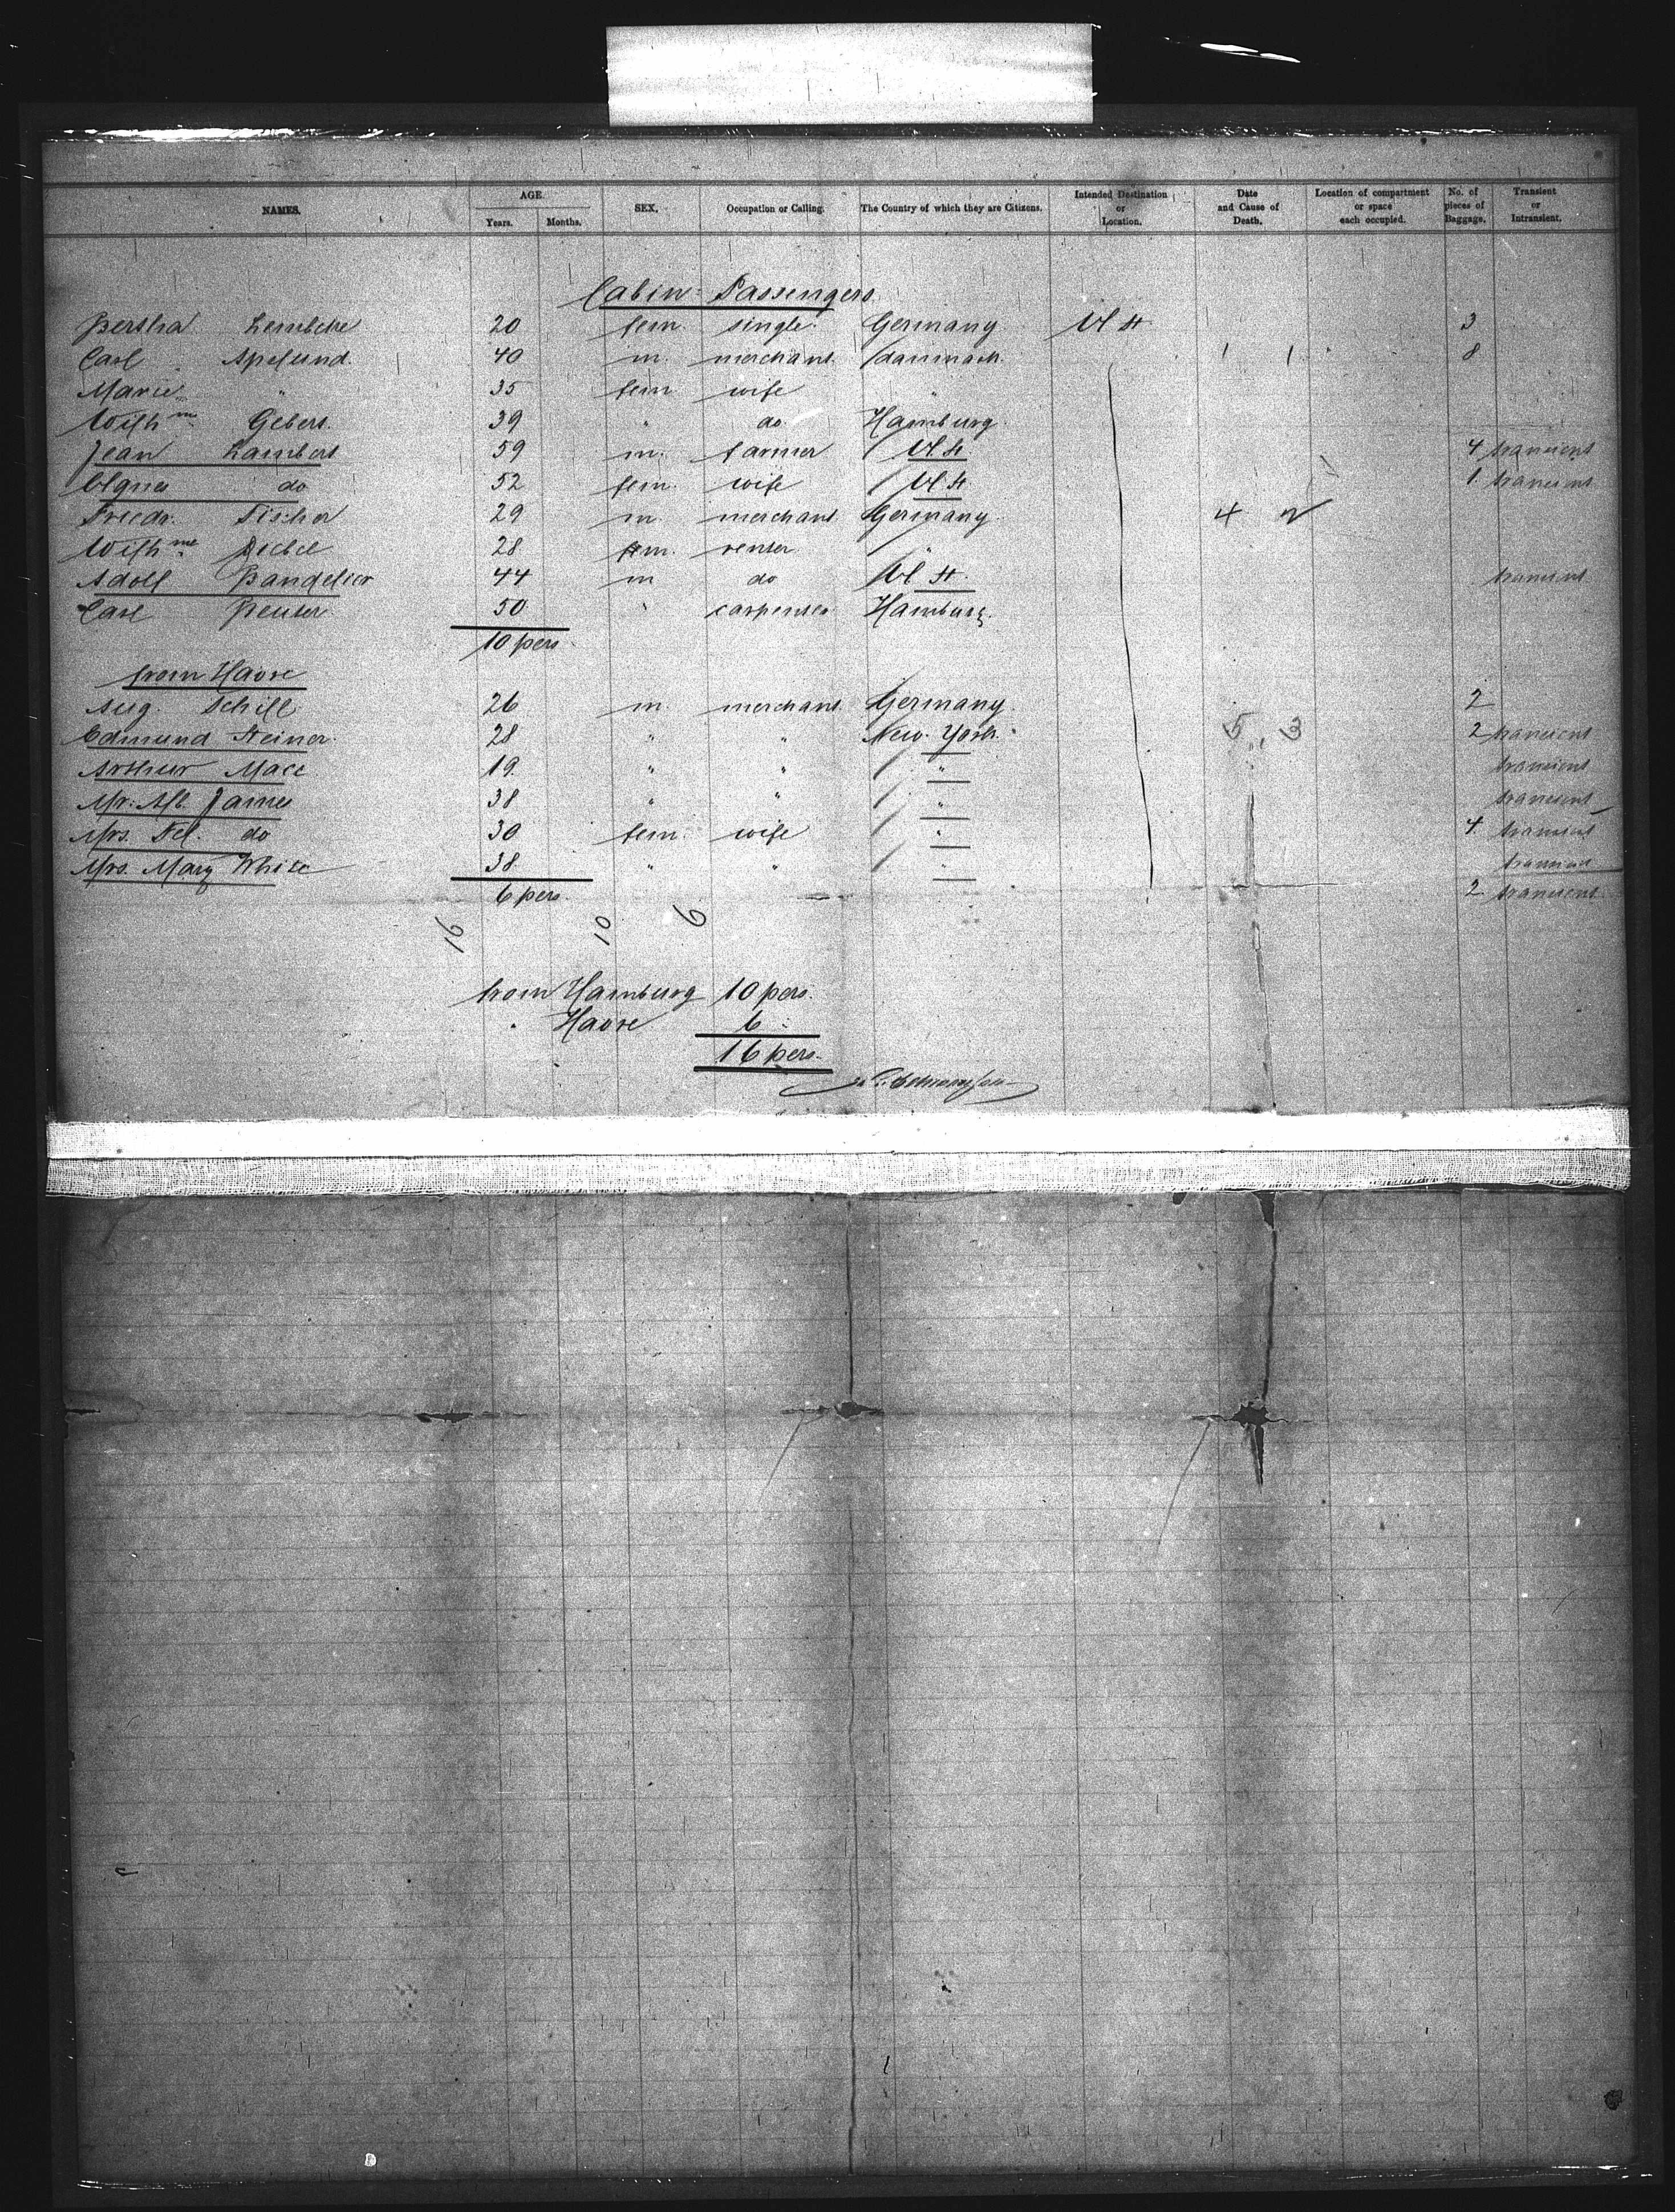 NAMES. AGE. SEX. Occupation or Calling. The Country of which they are Citizens. Intended Destination or Location. Date and Cause of Death. Location of compartment or space each occupied. No. of pieces of Baggage. Transient or Intransient.
Years. Months.
Cabin-Passengers
Bertha Lembcke 20 fem. single. Germany U St 3
Carl Apelund. 40 m. merchant. 1 1 8
Marie " 35 fem wife "
Wilhme Gebers. 39 " do. Hamburg
Jean Lambert 59 m. farmer U St 4 transient
Agnes do 52 fem. wife U St 1 transient
Friedr. Fischer 29 m. merchant Germany 4
Wilhme 28 fem. renter "
Adolf Bandelier 44 m do U St. transient
Carl Reuter 50 " carpenter Hamburg.
10 pers.
from Havre
Aug. Schill 26 m. merchant Germany 2
Edmund Steiner. 28 " " New-York. 5 3 2 transient
Arthur Mace 19. " " " transient
Mr. James 38 " " " transient
Mrs. do 30 fem. wife " 4 transient
Mrs. Mary White 38. " " " transient
6 pers. 2 transient
16 10 6
from Hamburg 10 pers.
" Havre 6 "
16 pers.